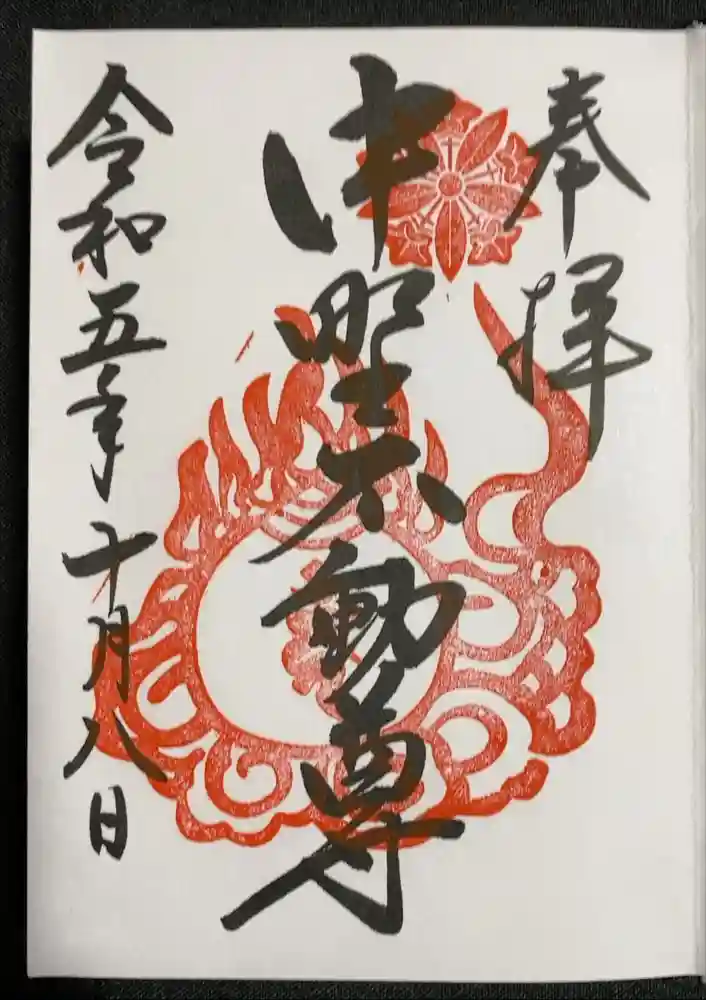 奉拝
中野不動尊
令和五年十月八日